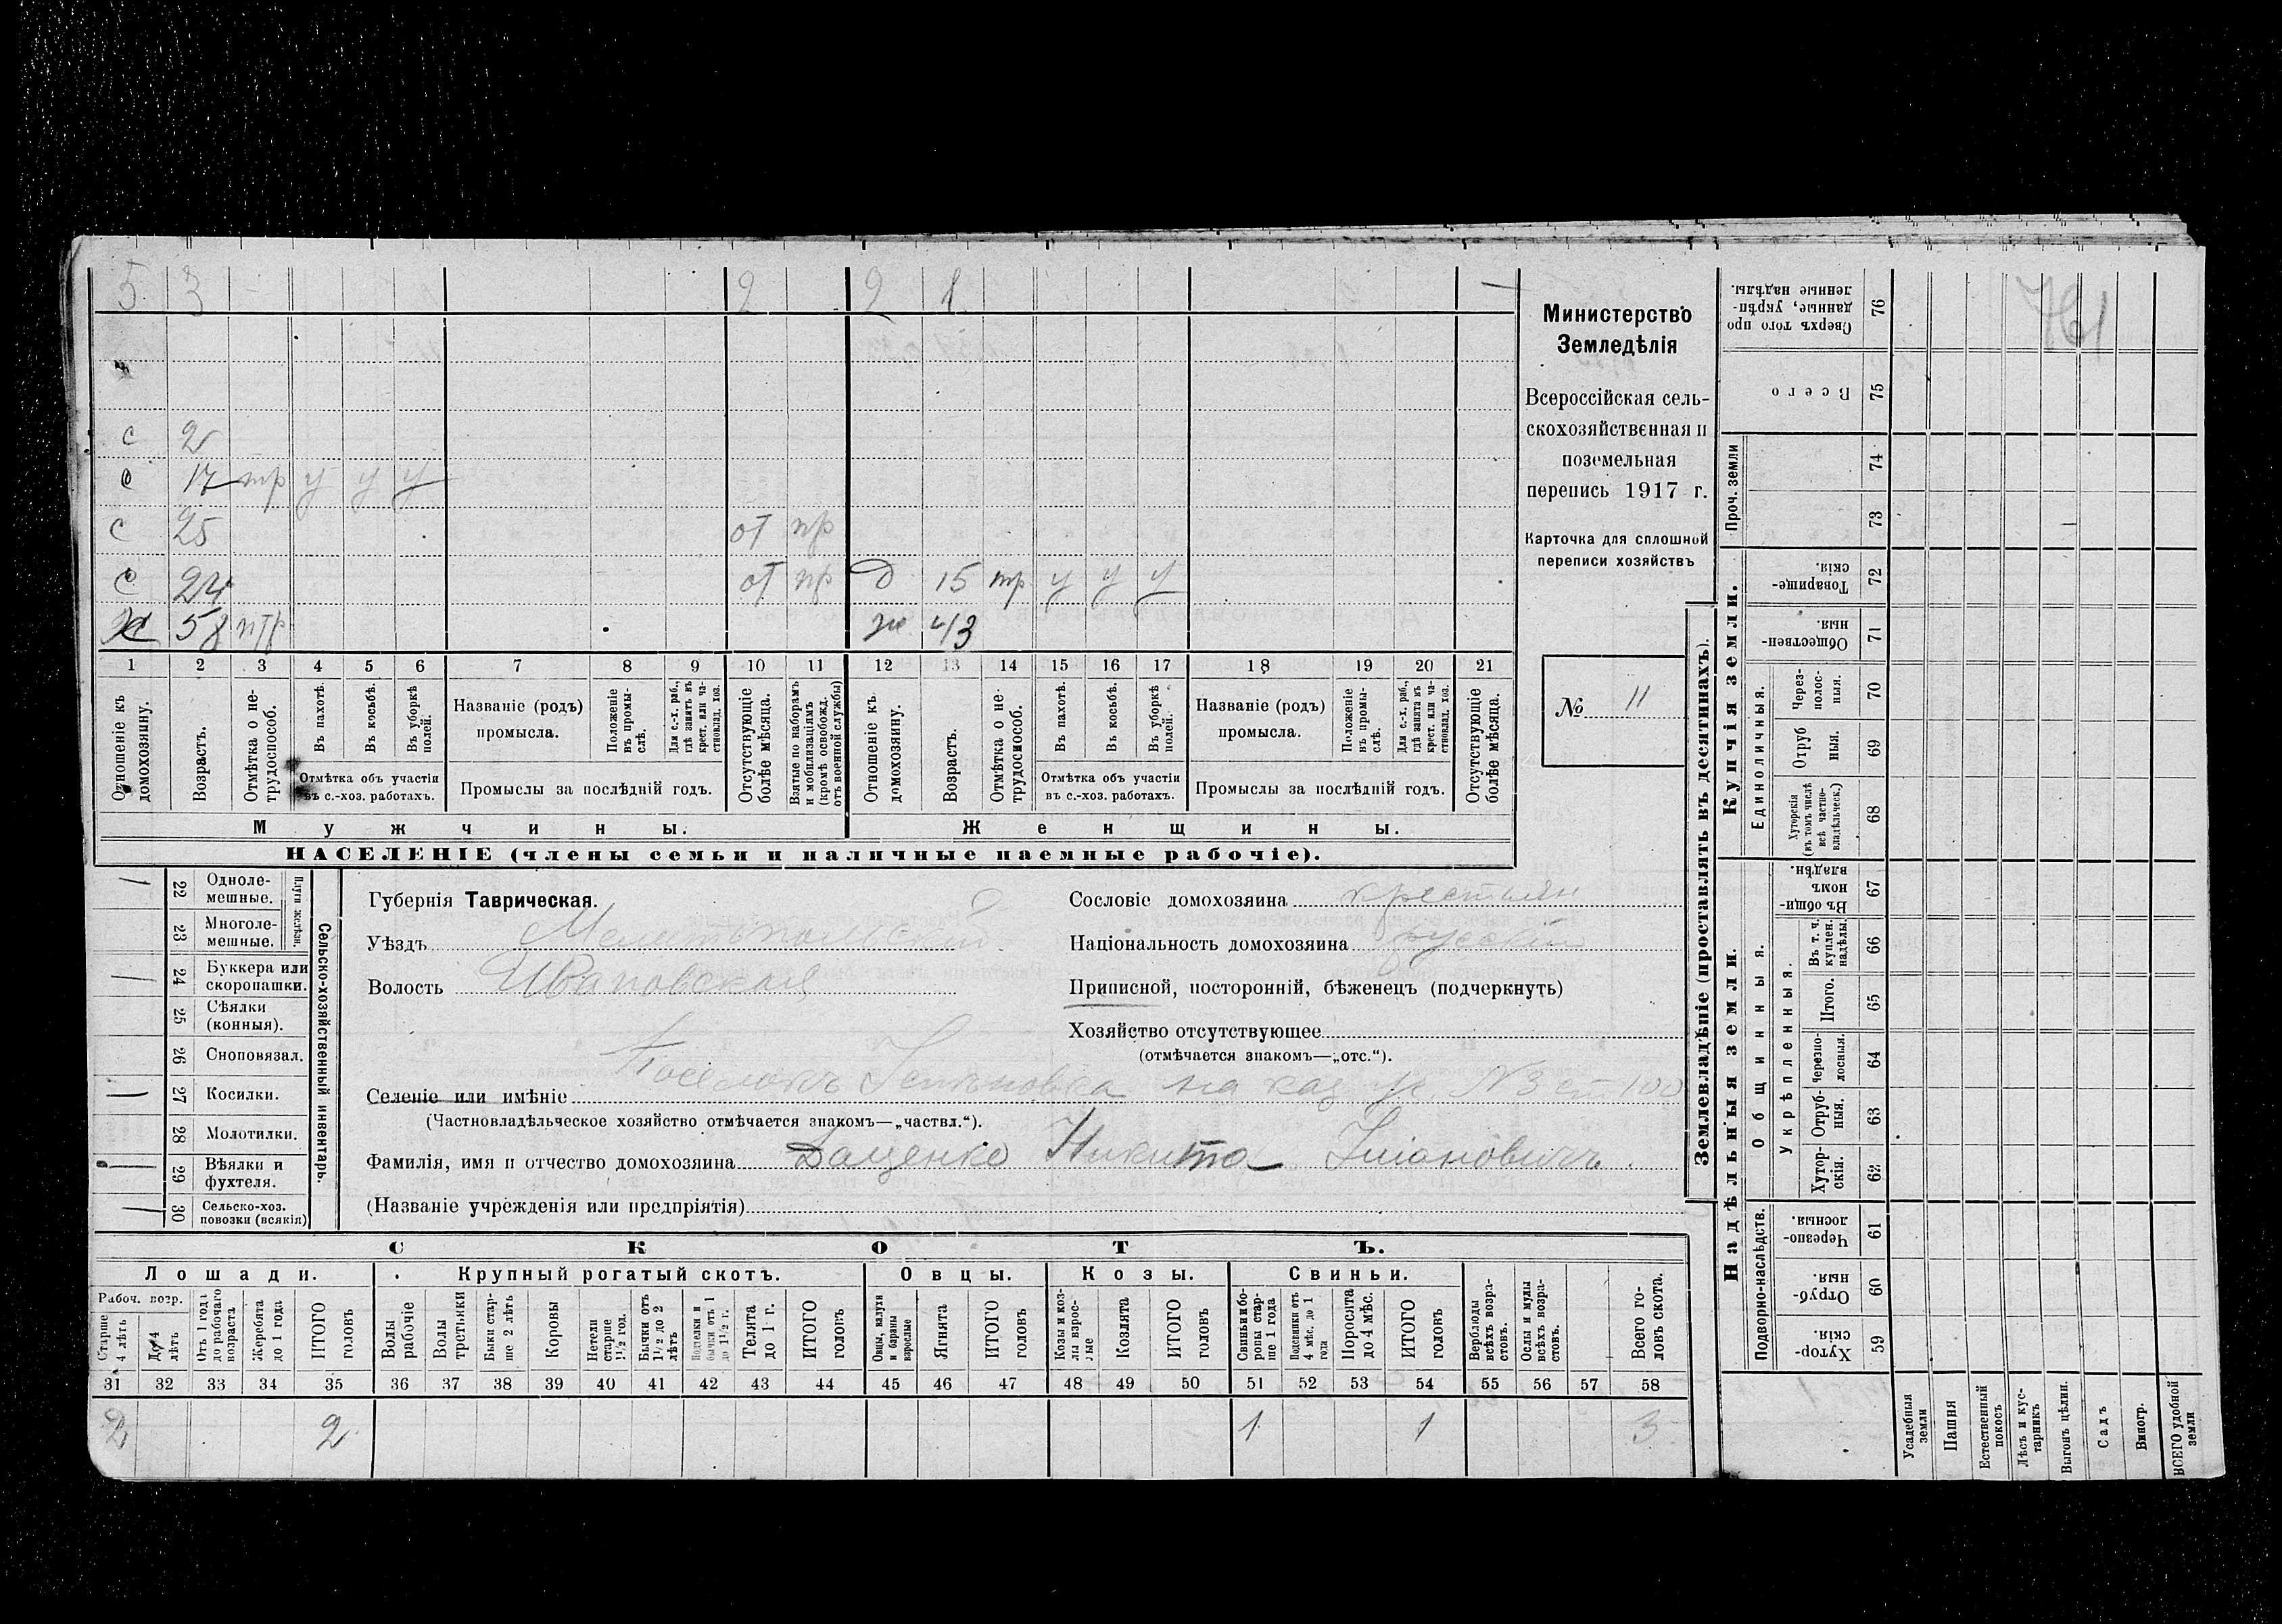 5 3 – 2 2 1 –
761
с 2
с 17 тр у у у
с 25 от пр
с 24 от пр д 15 тр у у у
х 58 нтр ж 43
1 2 3 4 5 6 7 8 9 10 11 12 13 14 15 16 17 18 19 20 21
Отношеніе къ домохозяину.
Возрастъ.
Отмѣтка о не-трудоспособ.
Въ пахотѣ.
Въ косьбѣ.
Въ уборкѣ полей.
Отмѣтка объ участіи въ с.-хоз. работахъ.
Названіе (родъ) промысла.
Положеніе въ промы-слѣ.
Для с.-х. раб., гдѣ занятъ въ крест. или ча-стновлад. хоз.
Промыслы за послѣдній годъ.
Отсутствующіе болѣе мѣсяца.
Взятые по наборамъ и мобилизаціямъ (кромѣ освобожд. отъ военной службы)
Отношеніе къ домохозяину.
Возрастъ.
Отмѣтка о не-трудоспособ.
Въ пахотѣ.
Въ косьбѣ.
Въ уборкѣ полей.
Отмѣтка объ участіи въ с.-хоз. работахъ.
Названіе (родъ) промысла.
Положеніе въ промы-слѣ.
Для с.-х. раб., гдѣ занята въ крест. или ча-стновлад. хоз.
Промыслы за послѣдній годъ.
Отсутствующіе болѣе мѣсяца.
Мужчины.
Женщины.
НАСЕЛЕНІЕ (члены семьи и наличные наемные рабочіе).
Министерство
Земледѣлія
Всероссійская сель-
скохозяйственная и
поземельная
перепись 1917 г.
Карточка для сплошной
переписи хозяйствъ
№ 11
22 Одноле-мешные.
23 Многоле-мешные.
Плуги желѣзн.
24 Буккера или скоропашки.
25 Сѣялки (конныя).
26 Сноповязал.
27 Косилки.
28 Молотилки.
29 Вѣялки и фухтеля.
30 Сельско-хоз. повозки (всякія)
Сельско-хозяйственный инвентарь.
Губернія Таврическая.
Уѣздъ Мелитопольскій
Волость Ивановская
Поселокъ
Селеніе или имѣніе на каз. уч. № 3
(Частновладѣльческое хозяйство отмѣчается знакомъ—„частвл.“).
Фамилія, имя и отчество домохозяина Даценко Никита
(Названіе учрежденія или предпріятія)
Сословіе домохозяина крестьян
Національность домохозяина русскій
Приписной, посторонній, бѣженецъ (подчеркнуть)
Хозяйство отсутствующее
(отмѣчается знакомъ—„отс.“).
СКОТЪ.
Лошади.
Крупный рогатый скотъ.
Овцы.
Козы.
Свиньи.
Рабоч. возр.
Старше 4 лѣтъ
До 4 лѣтъ
Отъ 1 года до рабочаго возраста
Жеребята до 1 года
ИТОГО головъ
Волы рабочіе
Волы третьяки
Быки стар-ше 2 лѣтъ
Коровы
Нетели старше 1½ год.
Бычки отъ 1½ до 2 лѣтъ
Подтелки и бычки отъ 1 до 1½ г.
Телята до 1 г.
ИТОГО головъ
Овцы, валухи и бараны взрослые
Ягнята
ИТОГО головъ
Козы и коз-лы взрос-лые
Козлята
ИТОГО головъ
Свиньи и бо-ровы стар-ше 1 года
Подсвинки отъ 4 мѣс. до 1 года
Поросята до 4 мѣс.
ИТОГО головъ
Верблюды всѣхъ возра-стовъ.
Ослы и мулы всѣхъ возра-стовъ.
Всего го-ловъ скота.
31 32 33 34 35 36 37 38 39 40 41 42 43 44 45 46 47 48 49 50 51 52 53 54 55 56 57 58
2 2 1 1 3
Землевладѣніе (проставлять въ десятинахъ).
Купчія земли.
Надѣльныя земли.
Сверхъ того про-данные, укрѣп-ленные надѣлы. 76
Всего 75
Проч. земли
74
73
Товарище-скія. 72
Обществен-ныя. 71
Единоличныя.
Через-полос-ныя. 70
Отруб ныя. 69
Хуторскія (въ томъ числѣ всѣ частно-владѣльческ.) 68
Общинныя.
Въ общи-номъ владѣн. 67
Укрѣпленныя.
Въ т. ч. куплен. надѣлы. 66
Итого. 65
Черезпо-лосныя. 64
Отруб-ныя. 63
Хутор-скія. 62
Подворно-наслѣдств.
Черезпо-лосныя. 61
Отруб-ныя. 60
Хутор-скія. 59
Усадебныя земли
Пашня
Естественный покосъ
Лѣсъ и кус-тарникъ
Выгонъ цѣлин.
Садъ
Виногр.
ВСЕГО удобной земли